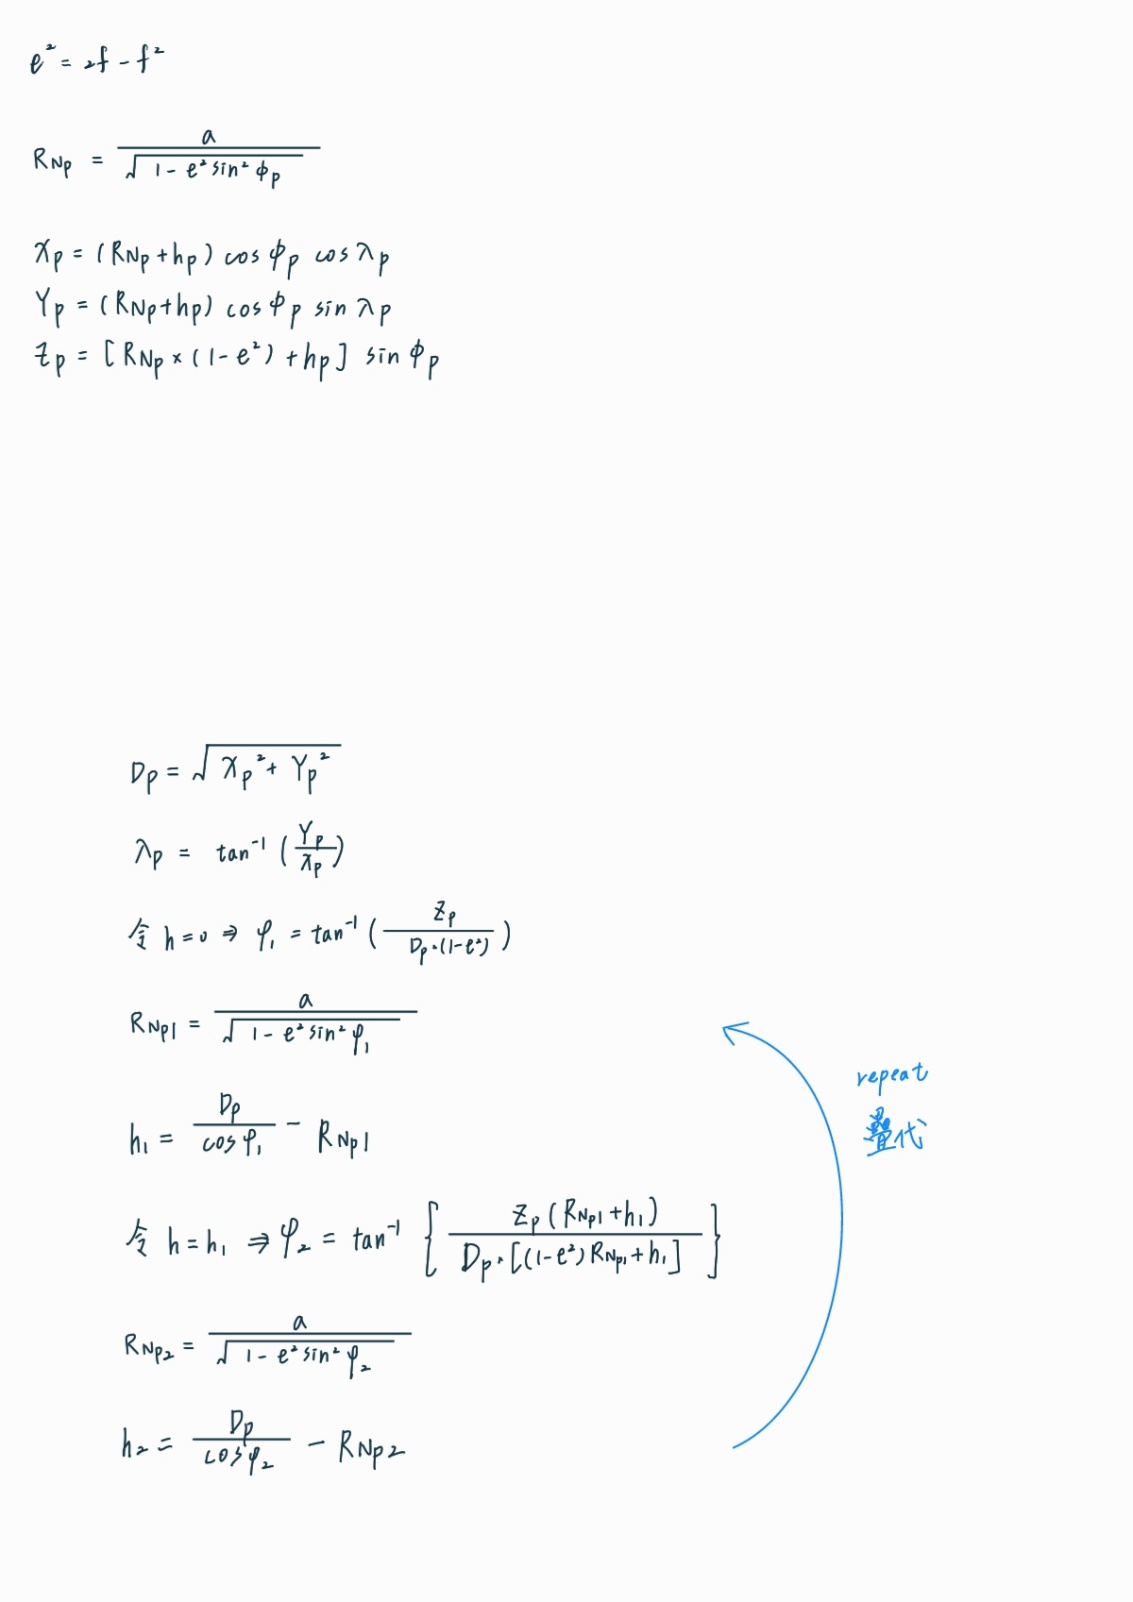 e² = 2f - f²
R_Np = a / √(1 - e² sin² ϕ_p)
X_p = (R_Np + h_p) cos ϕ_p cos λ_p
Y_p = (R_Np + h_p) cos ϕ_p sin λ_p
Z_p = [R_Np × (1 - e²) + h_p] sin ϕ_p
D_p = √(X_p² + Y_p²)
λ_p = tan⁻¹ (Y_p / X_p)
令 h = 0 ⇒ φ₁ = tan⁻¹ (Z_p / D_p·(1-e²))
R_Np1 = a / √(1 - e² sin² φ₁)
repeat
疊代
h₁ = D_p / cos φ₁ - R_Np1
令 h = h₁ ⇒ φ₂ = tan⁻¹ { Z_p (R_Np1 + h₁) / D_p·[(1-e²) R_Np1 + h₁] }
R_Np2 = a / √(1 - e² sin² φ₂)
h₂ = D_p / cos φ₂ - R_Np2